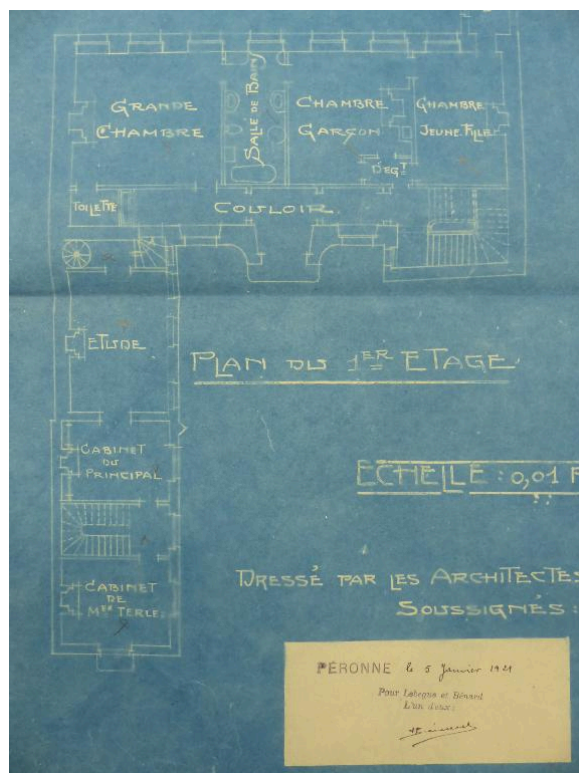 GRANDE
CHAMBRE
SALLE DE BAIN
CHAMBRE
GARÇON
CHAMBRE
JEUNE FILLE
DEGT
TOILETTE
COULOIR
ETUDE
PLAN DU 1ER ETAGE
CABINET
DU
PRINCIPAL
ECHELLE : 0,01 P
CABINET
DE
TERLE
DRESSÉ PAR LES ARCHITECTES
SOUSSIGNÉS :
PÉRONNE le 5 Janvier 1921
Pour Labègue et Bénard
L'un d'eux :